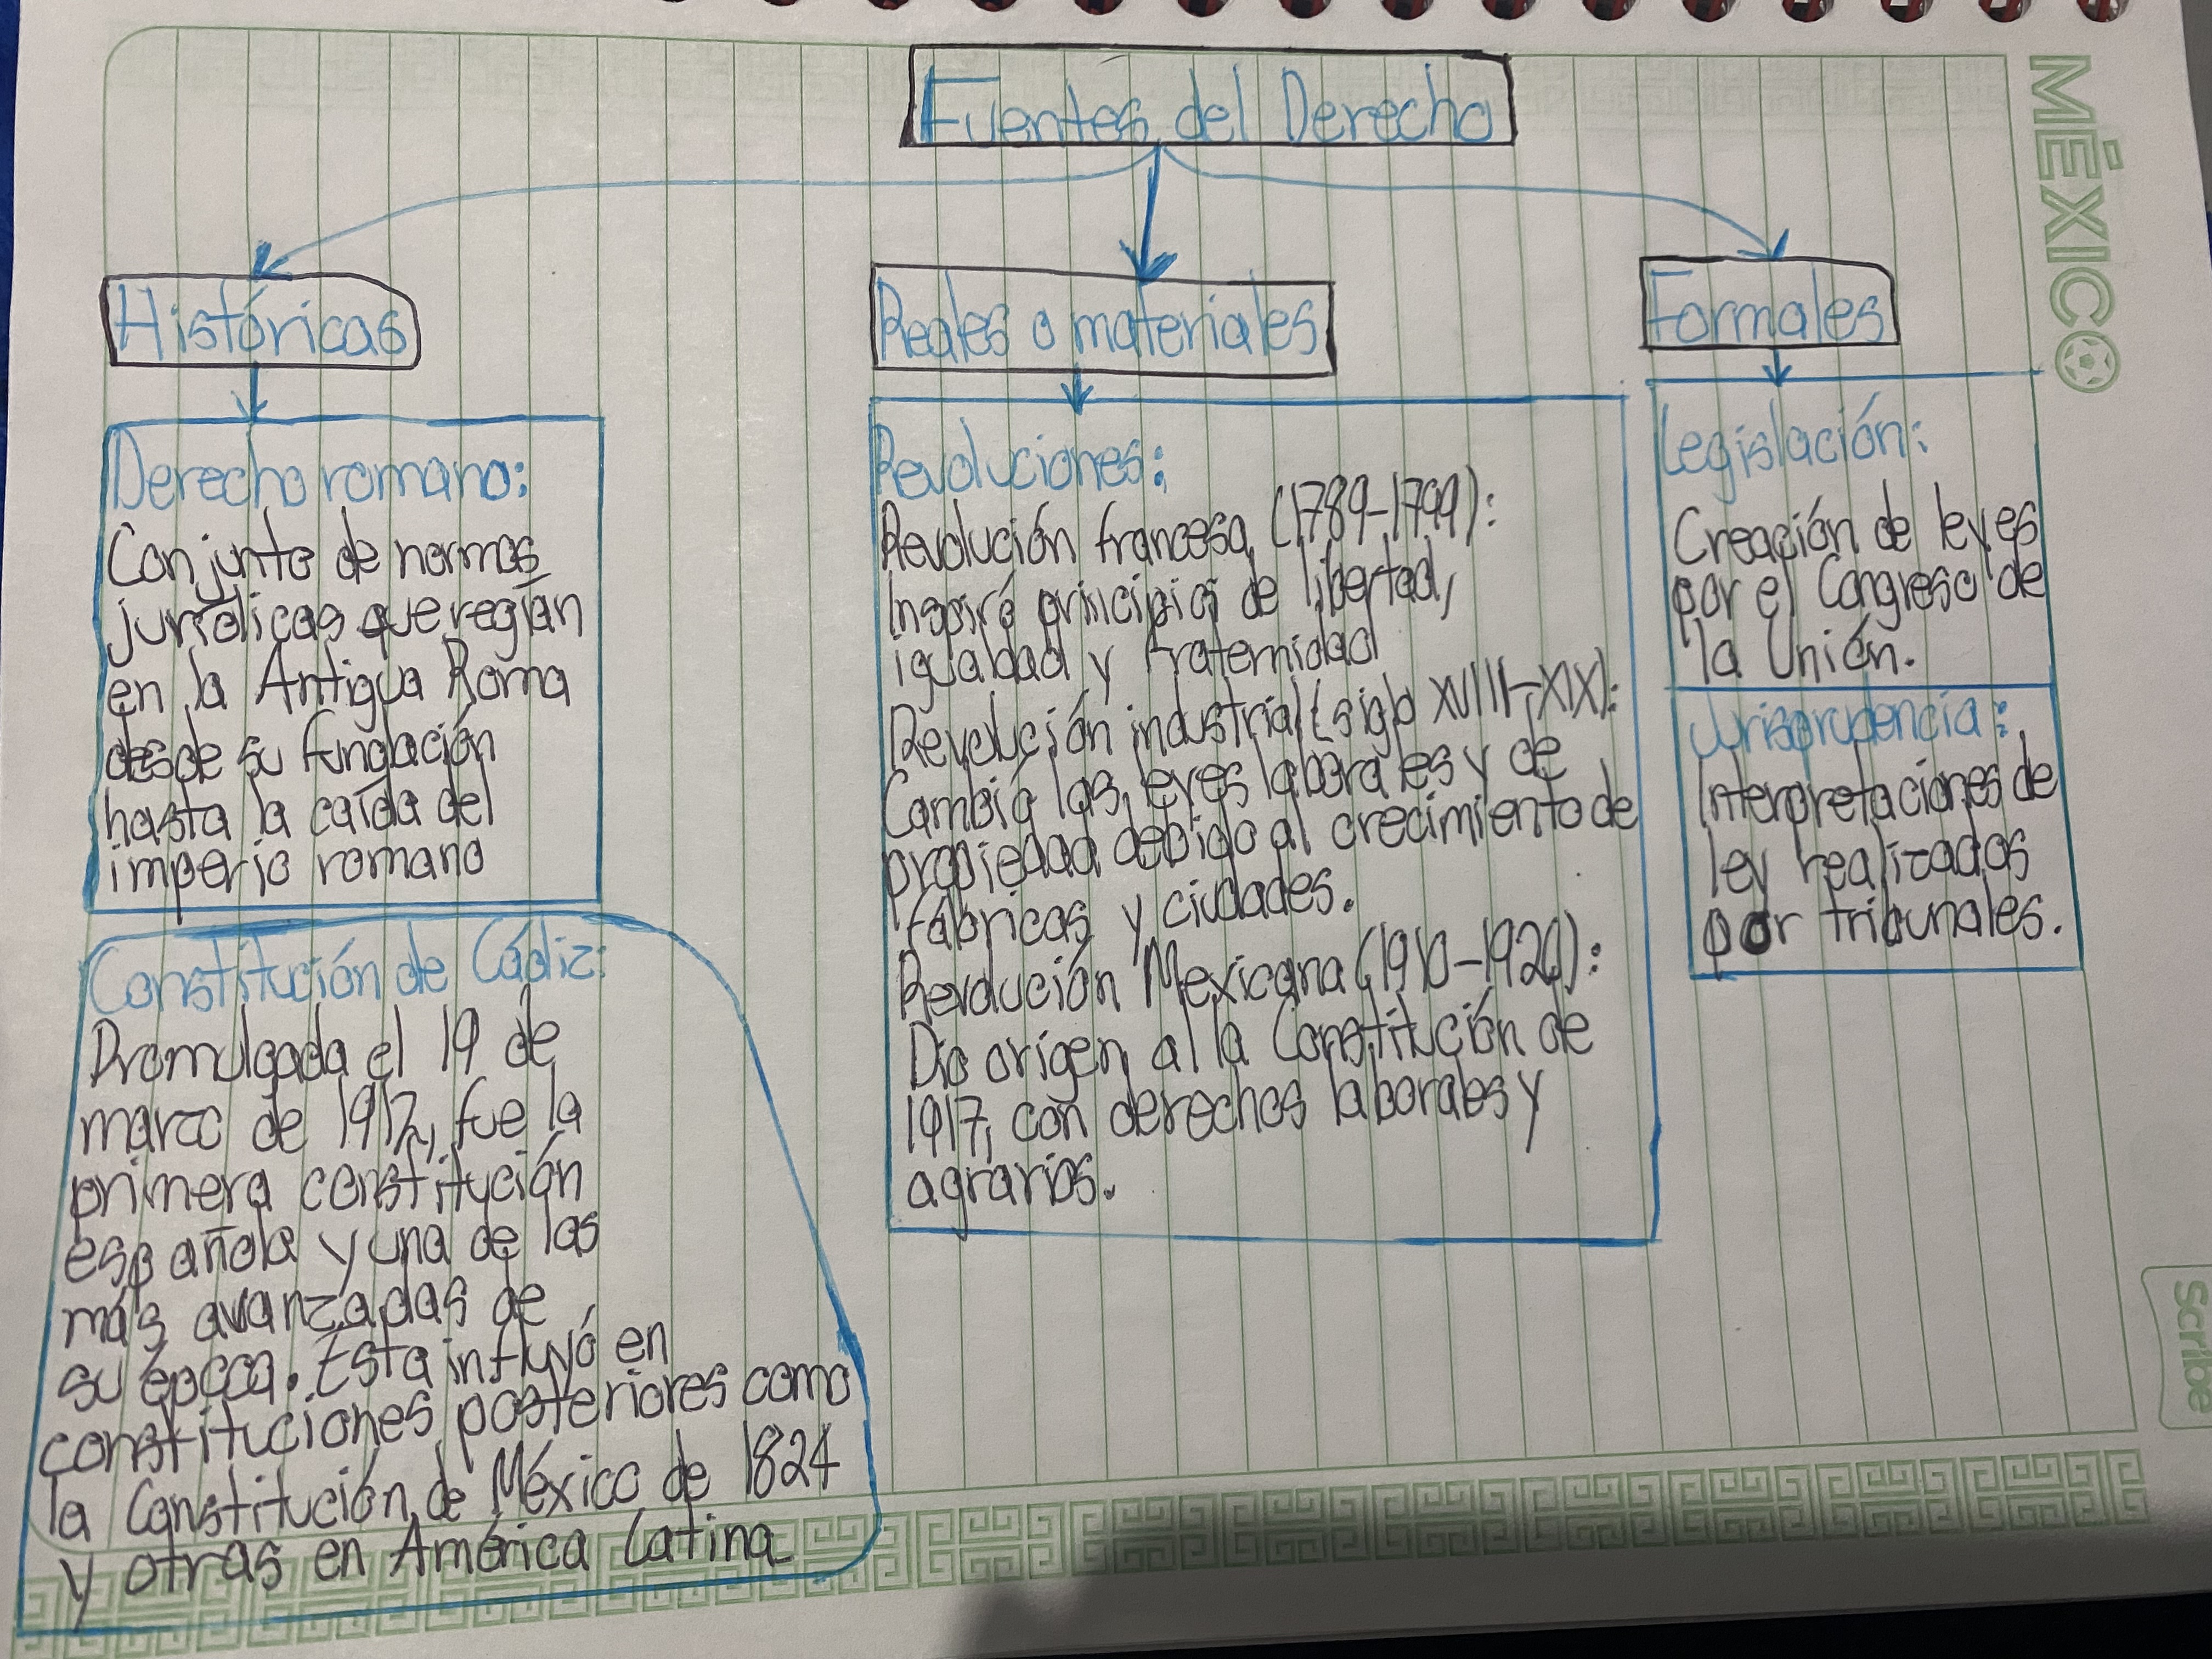 Fuentes del Derecho
Históricas
Derecho romano:
Conjunto de normas
jurídicas que regían
en la Antigua Roma
desde su fundación
hasta la caída del
imperio romano
Constitución de Cádiz:
Promulgada el 19 de
marzo de 1912, fue la
primera constitución
española y una de las
más avanzadas de
su época. Esta influyó en
constituciones posteriores como
la Constitución de México de 1824
y otras en América Latina
Reales o materiales
Revoluciones:
Revolución francesa (1789-1799):
Inspiró principios de libertad,
igualdad y fraternidad
Revolución industrial (siglo XVIII-XIX):
Cambió las leyes laborales y de
propiedad debido al crecimiento de
fábricas y ciudades.
Revolución Mexicana (1910-1920):
Dio origen a la Constitución de
1917, con derechos laborales y
agrarios.
Formales
Legislación:
Creación de leyes
por el Congreso de
la Unión.
Jurisprudencia:
Interpretaciones de
ley realizados
por tribunales.
MÉXICO
Scribe